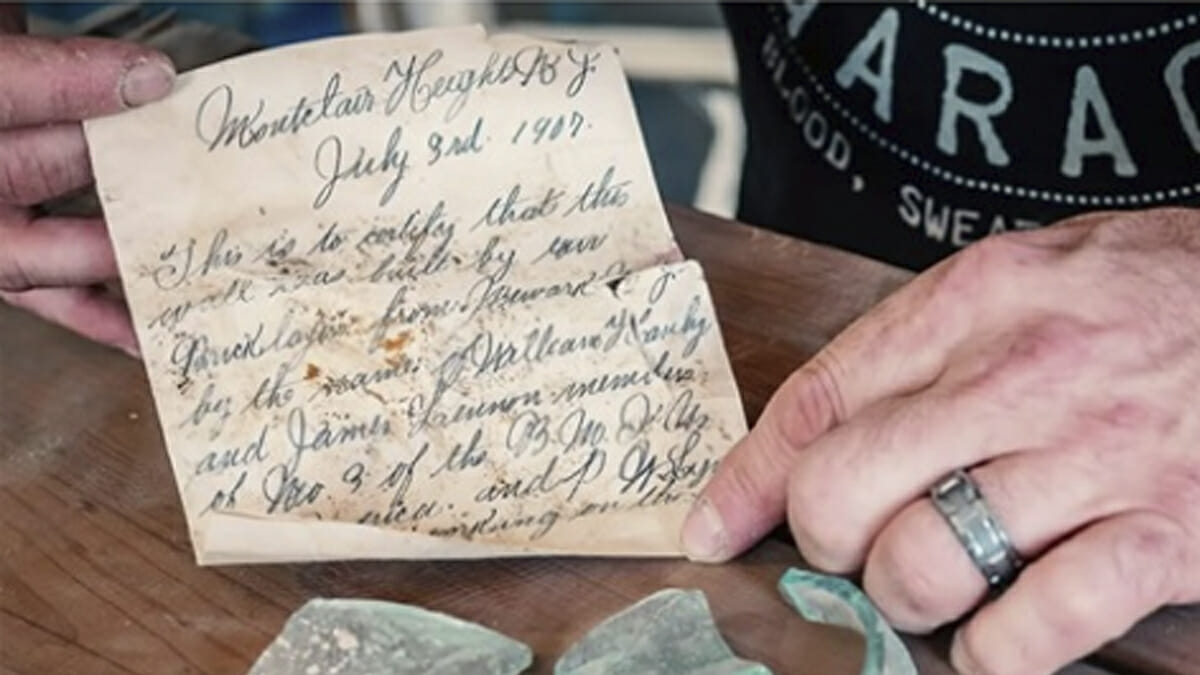 Montclair Heights N J.
July 3rd. 1907.
This is to certify that this
wall was built by two
Bricklayers from Newark N. J.
by the name of William Hanly
and James Lennon members
of No. 3 of the B. M. I. U.
and P
working on the
ARA
BLOOD, SWEAT